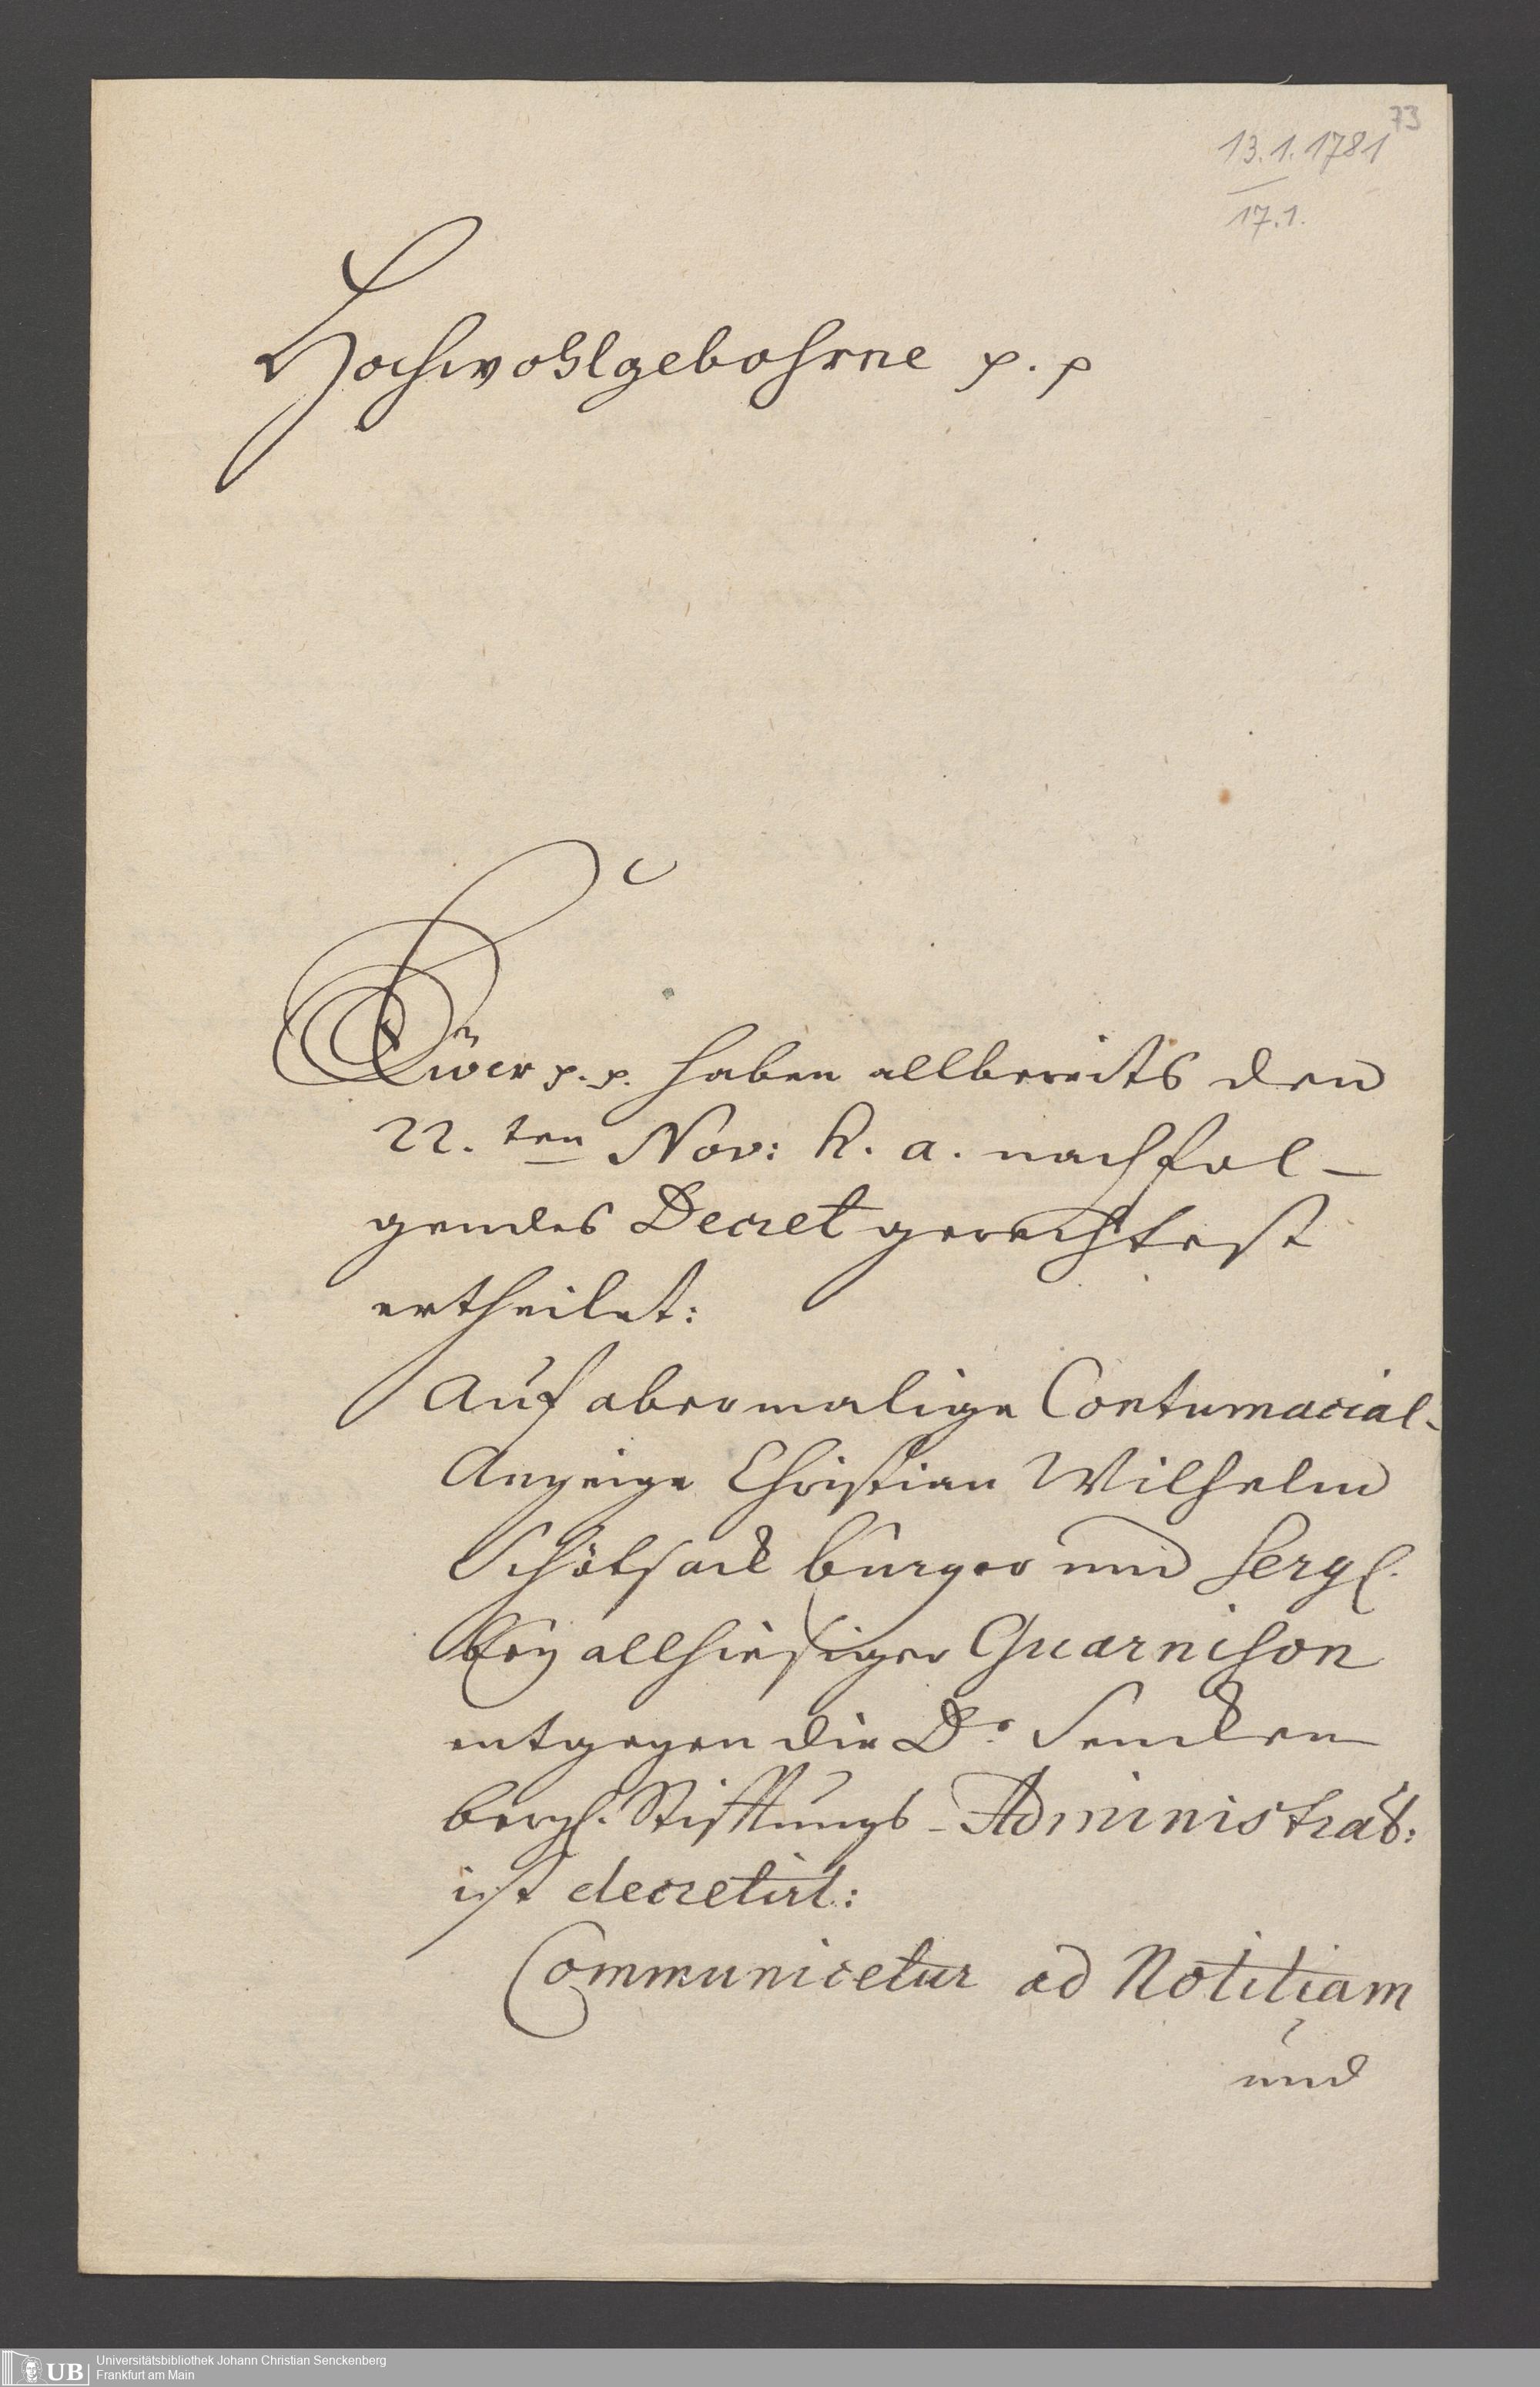 73
13.1.1781
17.1.
Hochwohlgebohrne p. p
Ewer p. p. haben allbereits den
22.ten Nov: h. a. nachfol-
gendes Decret gerechtest
ertheilet:
Auf abermalige Contumacial-
Anzeige Christian Wilhelm
burger und Serg.
bey allhiesiger Guarnison
entgegen die Dr. Sencken
bergl. Stifftungs-Administrat:
ist decretirt:
Communicetur ad Notitiam
und
UB
Universitätsbibliothek Johann Christian Senckenberg
Frankfurt am Main